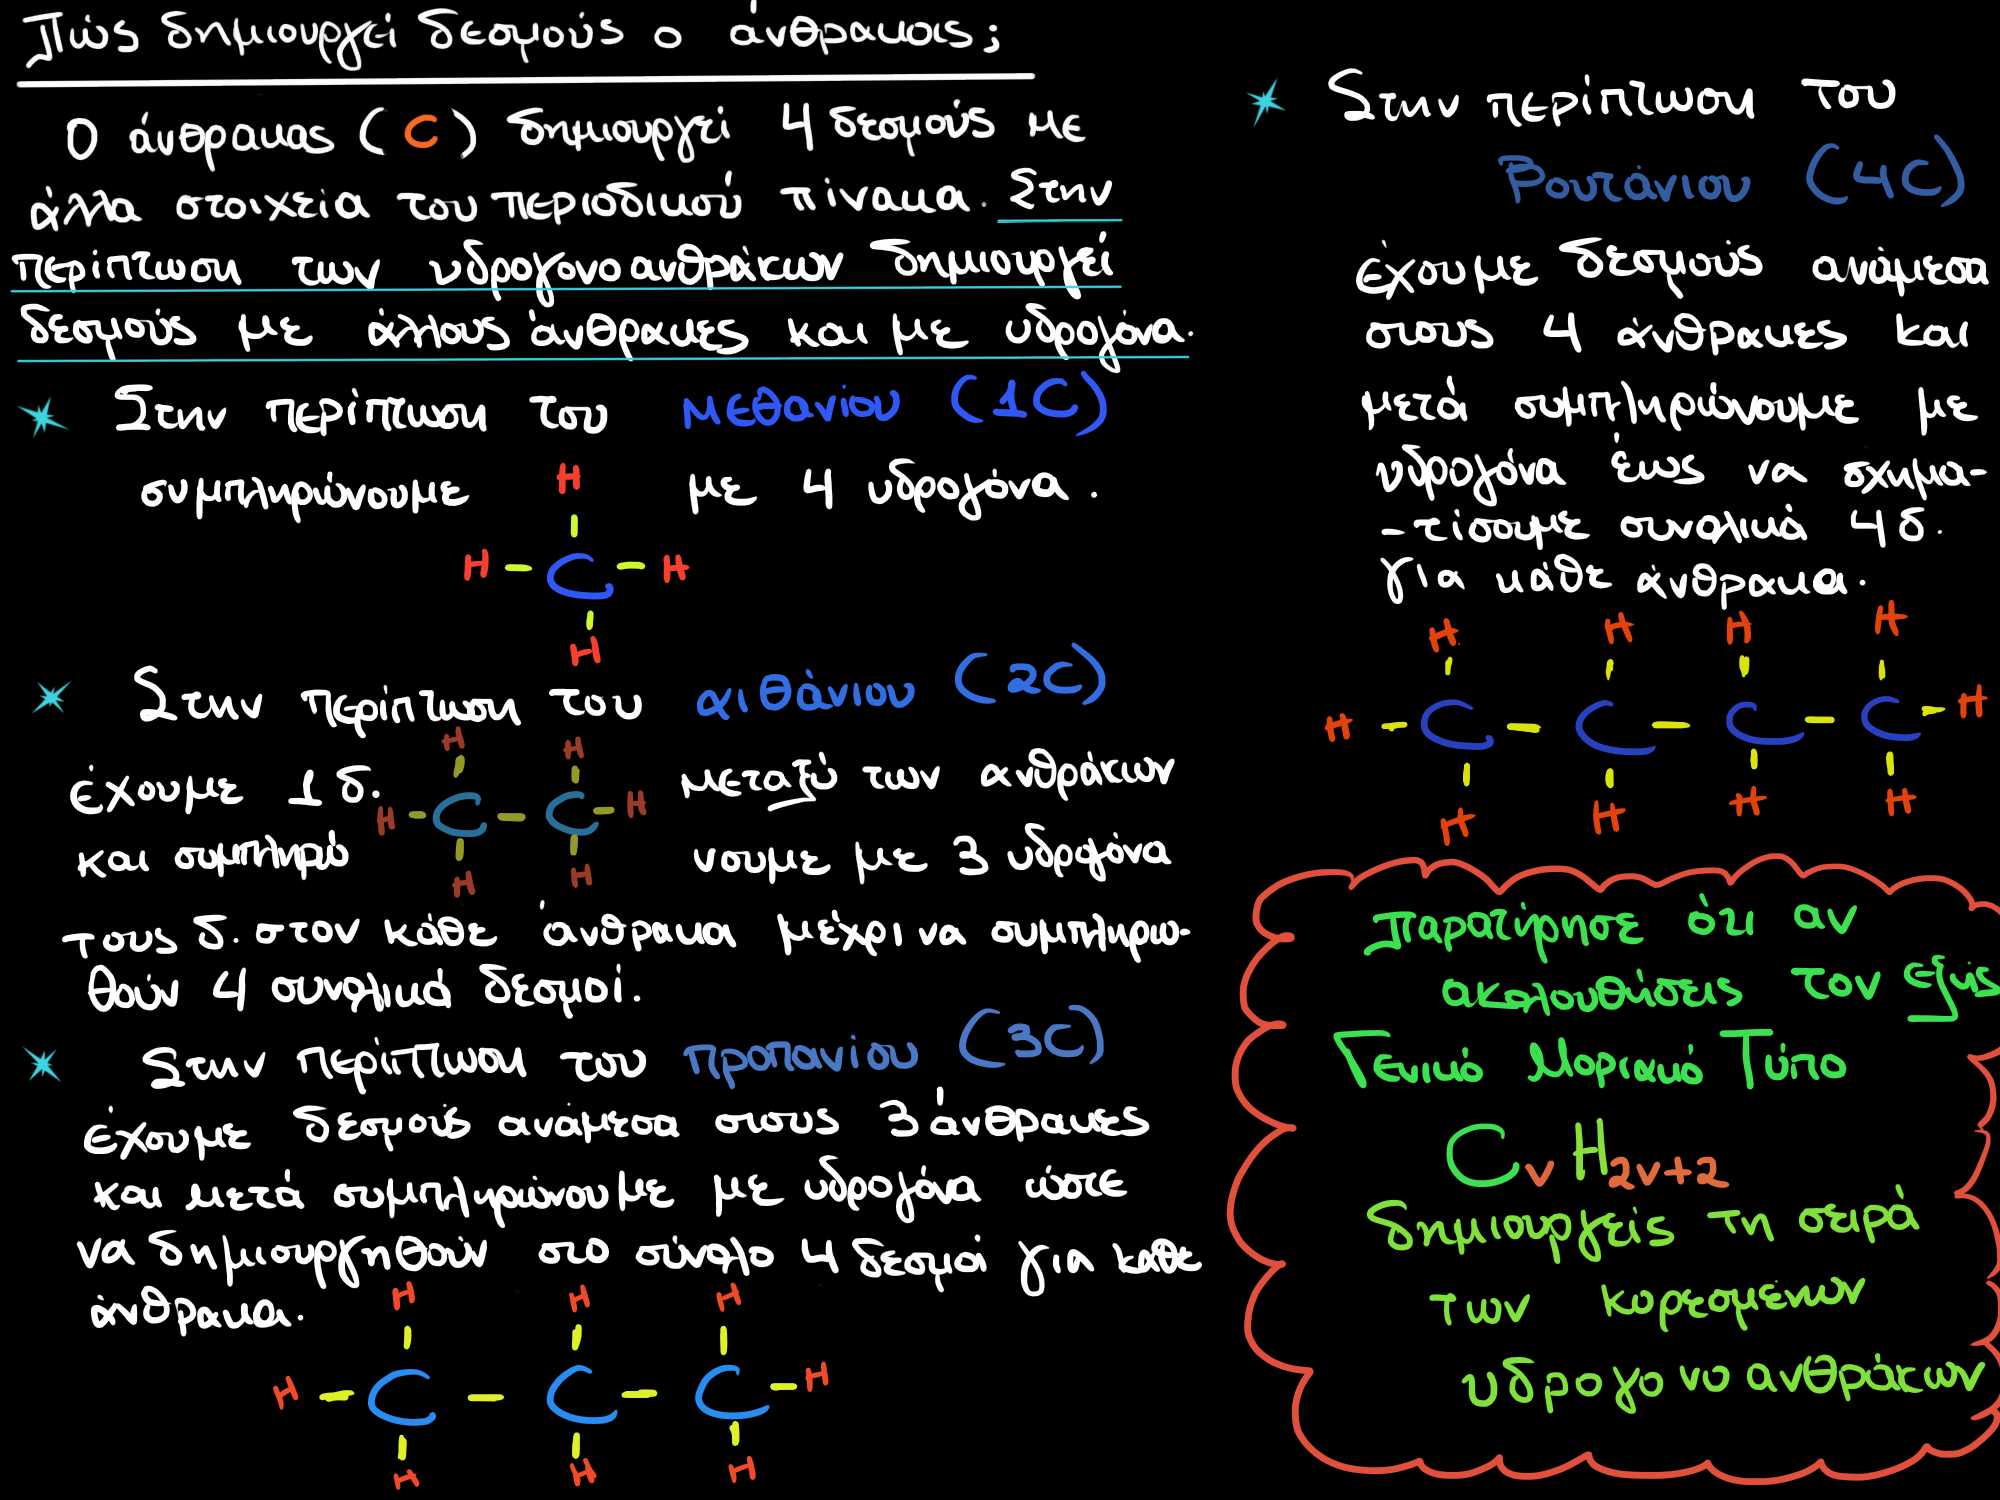 Πώς δημιουργεί δεσμούς ο άνθρακας;
Ο άνθρακας (C) δημιουργεί 4 δεσμούς με
άλλα στοιχεία του περιοδικού πίνακα. Στην
περίπτωση των υδρογονοανθράκων δημιουργεί
δεσμούς με άλλους άνθρακες και με υδρογόνα.
Στην περίπτωση του μεθανίου (1C)
συμπληρώνουμε με 4 υδρογόνα.
H
H - C - H
H
Στην περίπτωση του αιθάνιου (2C)
έχουμε 1 δ. μεταξύ των ανθράκων
και συμπληρώ νουμε με 3 υδρογόνα
H H
H - C - C - H
H H
τους δ. στον κάθε άνθρακα μέχρι να συμπληρω-
θούν 4 συνολικά δεσμοί.
Στην περίπτωση του προπανίου (3C)
έχουμε δεσμούς ανάμεσα στους 3 άνθρακες
και μετά συμπληρώνουμε με υδρογόνα ώστε
να δημιουργηθούν στο σύνολο 4 δεσμοί για κάθε
άνθρακα.
H H H
H - C - C - C - H
H H H
Στην περίπτωση του
Βουτάνιου (4C)
έχουμε δεσμούς ανάμεσα
στους 4 άνθρακες και
μετά συμπληρώνουμε με
υδρογόνα έως να σχημα-
-τίσουμε συνολικά 4 δ.
για κάθε άνθρακα.
H H H H
H - C - C - C - C - H
H H H H
Παρατήρησε ότι αν
ακολουθήσεις τον εξής
Γενικό Μοριακό Τύπο
CνH2ν+2
δημιουργείς τη σειρά
των κορεσμένων
υδρογονοανθράκων